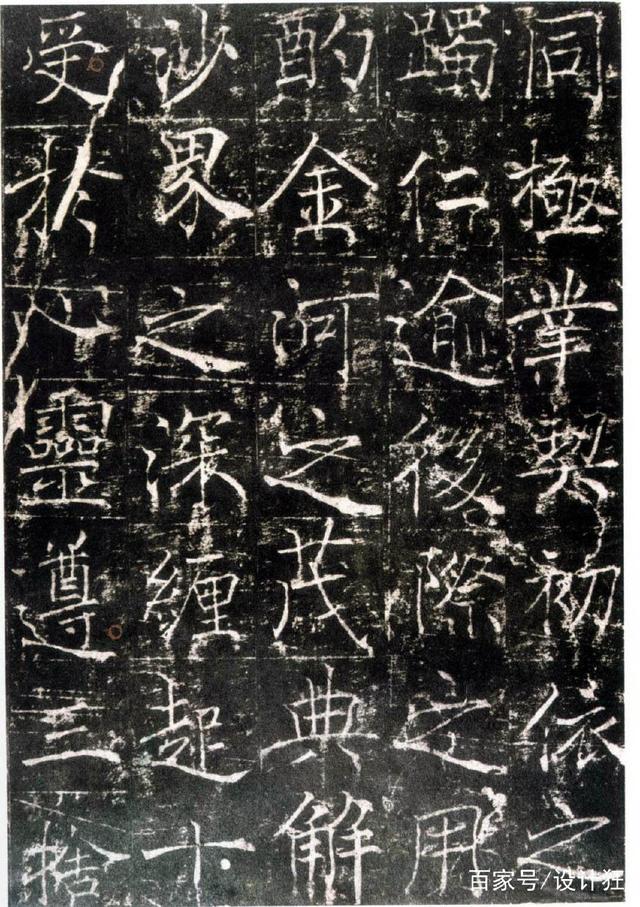 同極業契初依之
躅仁逾後際之用
酌金河之茂典解
沙界之深纏起十
受於靈遵三
百家号/设计狂